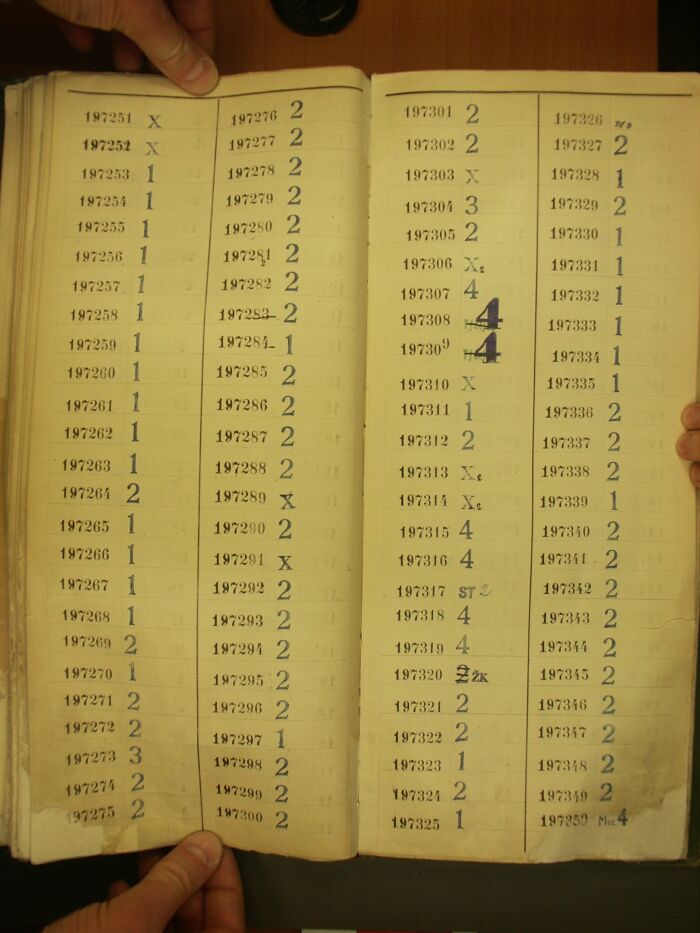 197251 X
197252 X
197253 1
197254 1
197255 1
197256 1
197257 1
197258 1
197259 1
197260 1
197261 1
197262 1
197263 1
197264 2
197265 1
197266 1
197267 1
197268 1
197269 2
197270 1
197271 2
197272 2
197273 3
197274 2
197275 2
197276 2
197277 2
197278 2
197279 2
197280 2
197281 2
197282 2
197283 2
197284 1
197285 2
197286 2
197287 2
197288 2
197289 X
197290 2
197291 X
197292 2
197293 2
197294 2
197295 2
197296 2
197297 1
197298 2
197299 2
197300 2
197301 2
197302 2
197303 X
197304 3
197305 2
197306 X2
197307 4
197308 4
197309 4
197310 X
197311 1
197312 2
197313 X2
197314 X2
197315 4
197316 4
197317 ST 2
197318 4
197319 4
197320 2 ŽK
197321 2
197322 2
197323 1
197324 2
197325 1
197326
197327 2
197328 1
197329 2
197330 1
197331 1
197332 1
197333 1
197334 1
197335 1
197336 2
197337 2
197338 2
197339 1
197340 2
197341 2
197342 2
197343 2
197344 2
197345 2
197346 2
197347 2
197348 2
197349 2
197350 4